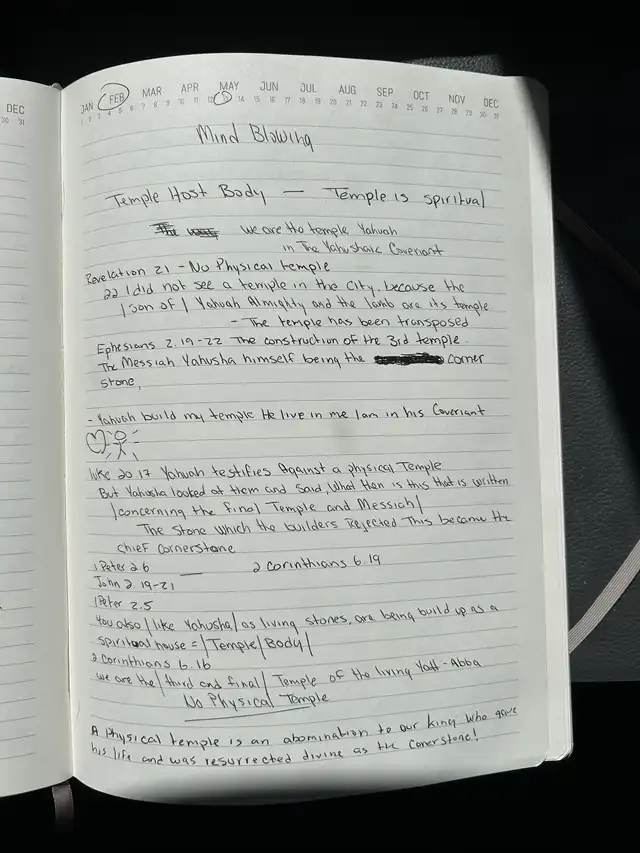 DEC
30 31
JAN FEB MAR APR MAY JUN JUL AUG SEP OCT NOV DEC
1 2 3 4 5 6 7 8 9 10 11 12 13 14 15 16 17 18 19 20 21 22 23 24 25 26 27 28 29 30 31
Mind Blowing
Temple Host Body — Temple is spiritual
we are the temple Yahuah
in The Yahushaic Covariant
Revelation 21 - No Physical temple
22 I did not see a temple in the City, because the
/son of/ Yahuah Almighty and the lamb are its temple
- The temple has been transposed
Ephesians 2.19-22 The construction of the 3rd temple.
The Messiah Yahusha himself being the corner
stone,
- Yahuah build my temple He live in me I am in his Covariant
luke 20.17 Yahuah testifies Against a physical Temple
But Yahusha looked at them and said, What then is this that is written
/concerning the final Temple and Messiah/
The stone which the builders Rejected This became the
chief cornerstone
1 Peter 2.6 — 2 Corinthians 6.19
John 2.19-21
1 Peter 2.5
You also /like Yahusha/ as living stones, are being build up as a
spiritual house = /Temple/Body/
2 Corinthians 6.16
we are the /third and final/ Temple of the living Yah - Abba
No Physical Temple
A Physical temple is an abomination to our king who gave
his life and was resurrected divine as the Conerstone!